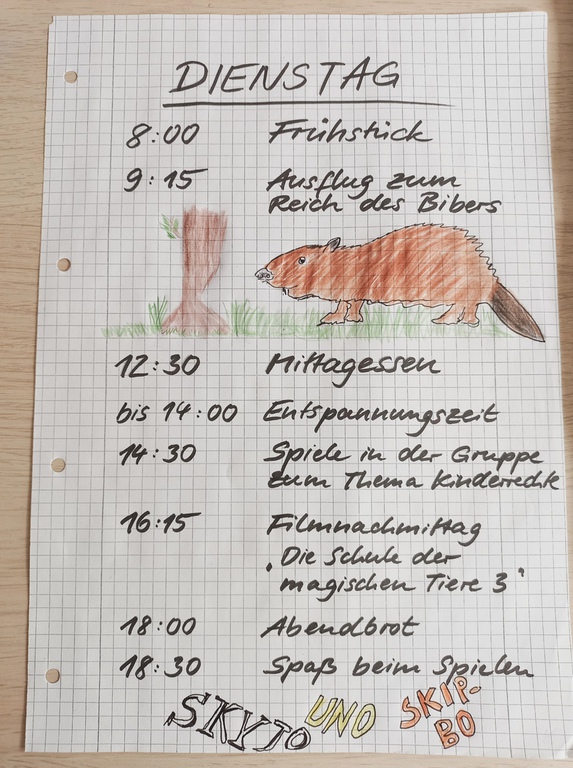 DIENSTAG
8:00 Frühstück
9:15 Ausflug zum
Reich des Bibers
12:30 Mittagessen
bis 14:00 Entspannungszeit
14:30 Spiele in der Gruppe
zum Thema Kinderrechte
16:15 Filmnachmittag
"Die Schule der
magischen Tiere 3"
18:00 Abendbrot
18:30 Spaß beim Spielen
SKYJO UNO SKIP-
BO